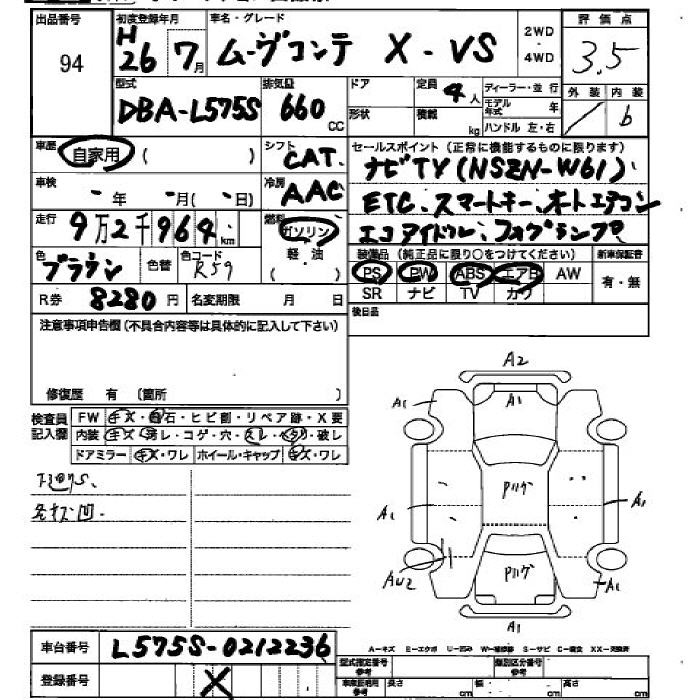 出品番号 初度登録年月 車名・グレード 2WD ・ 4WD 評価点
94 H26 7月 ムーヴコンテ X-VS 3.5
型式 排気量 ドア 定員 4人 ディーラー・並行 外装 内装
DBA-L575S 660cc 形状 積載 kg モデル年式 年 ハンドル 左・右 b
車歴 自家用 ( ) シフト CAT. セールスポイント(正常に機能するものに限ります)
ナビTV(NSZN-W61)、
車検 - 年 - 月(- 日) 冷房 AAC ETC、スマートキー、オートエアコン
走行 9万2千964km 燃料 ガソリン エコアイドル、フォグランプ
色 ブラウン 色替 色コード R59 軽・油 ( ) 装備品(純正品に限り○をつけてください) 新車保証書
PS PW ABS エアB AW 有・無
R券 8280円 名変期限 月 日 SR ナビ TV カワ
注意事項申告欄(不具合内容等は具体的に記入して下さい) 後日品
修復歴 有 (箇所 )
検査員記入欄 FW キズ・飛石・ヒビ割・リペア跡・X要
内装 キズ・汚レ・コゲ・穴・スレ・ヘタリ・破レ
ドアミラー キズ・ワレ ホイール・キャップ キズ・ワレ
A2
A1 A1 A1
Pハゲ
A1 A1
AU2 Pハゲ A1
A1
車台番号 L575S-0212236
A-キズ E-エクボ U-凹み W-補修跡 S-サビ C-腐食 XX-交換済
登録番号 X 型式指定番号 参考 類別区分番号 参考
車庫証明用 参考 長さ cm 幅 cm 高さ cm